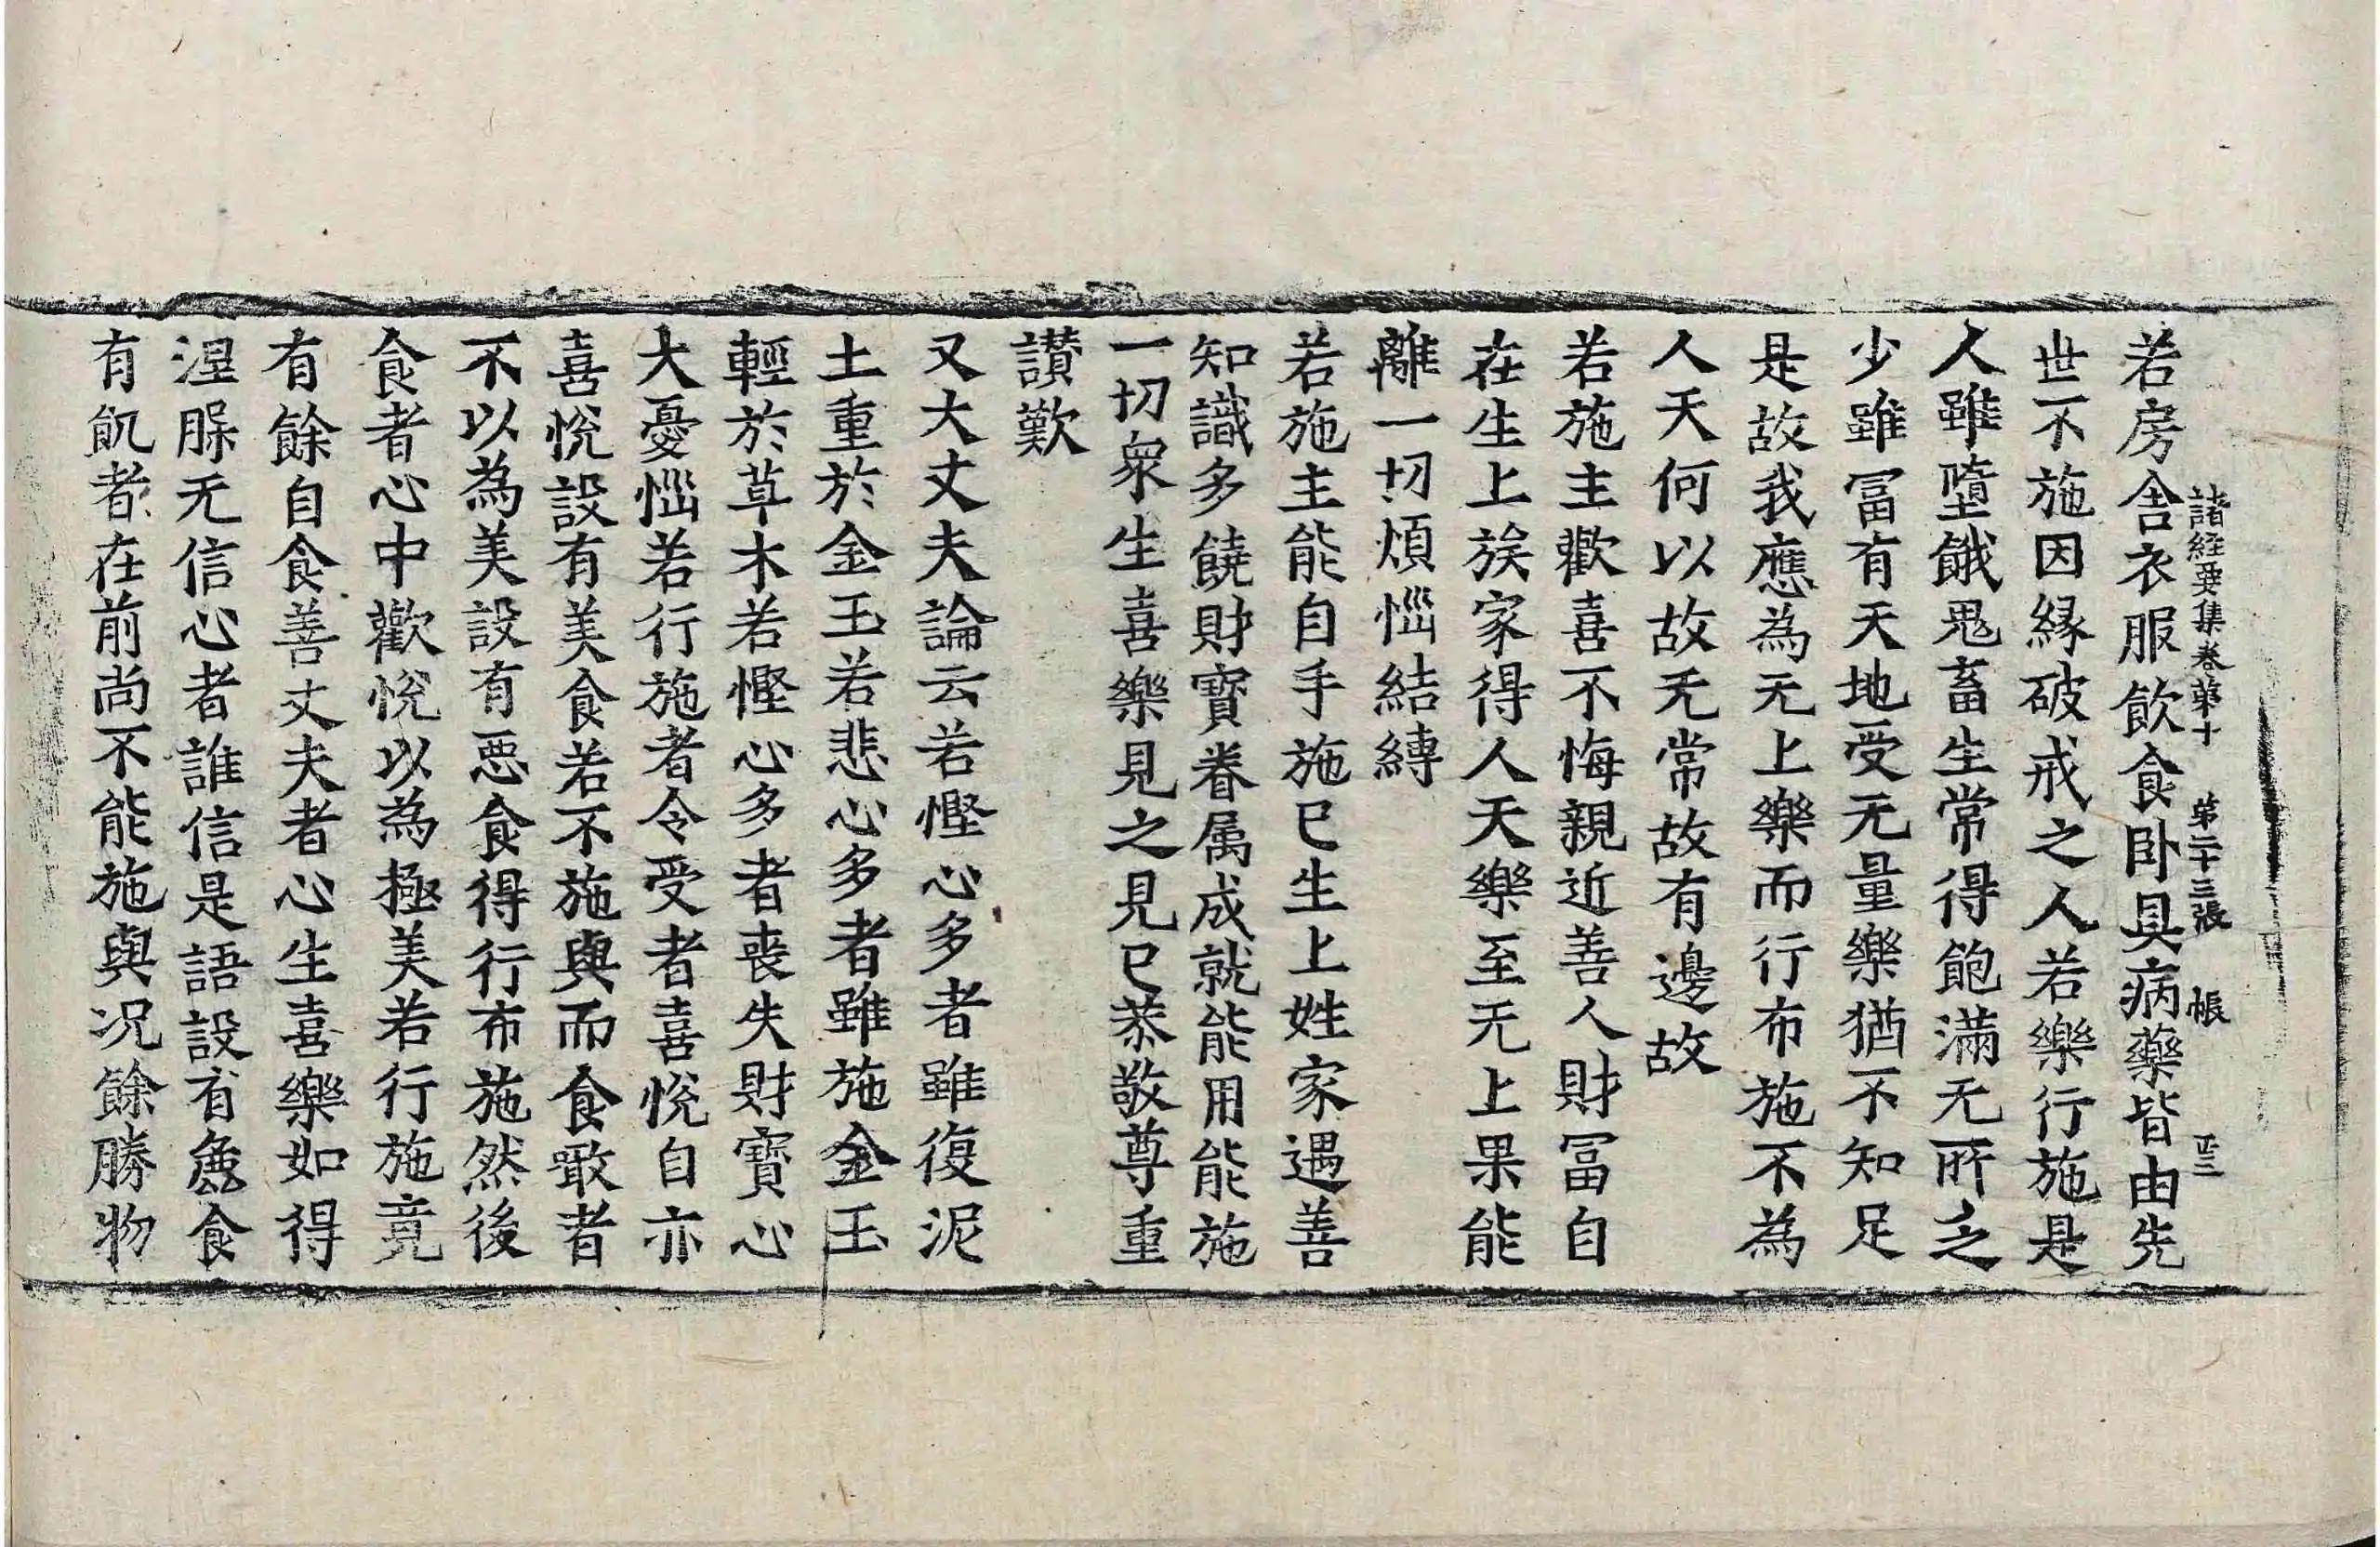 諸經要集卷第十　第二十三張　帳　
若房舍衣服飲食卧具病藥皆由先
世不施因緣破戒之人若樂行施是
人雖墮餓鬼畜生常得飽滿无所乏
少雖冨有天地受无量樂猶不知足
是故我應為无上樂而行布施不為
人天何以故无常故有邊故
若施主歡喜不悔親近善人財冨自
在生上族家得人天樂至无上果能
離一切煩惱結縛
若施主能自手施已生上姓家遇善
知識多饒財寶眷属成就能用能施
一切衆生喜樂見之見已恭敬尊重
讃歎
又大丈夫論云若慳心多者雖復泥
土重於金玉若悲心多者雖施金玉
輕於草木若慳心多者喪失財寶心
大憂惱若行施者令受者喜悅自亦
喜悅設有美食若不施與而食噉者
不以為美設有惡食得行布施然後
食者心中歡悅以為極美若行施竟
有餘自食善丈夫者心生喜樂如得
涅槃无信心者誰信是語設有麁食
有飢者在前尚不能施與况餘勝物